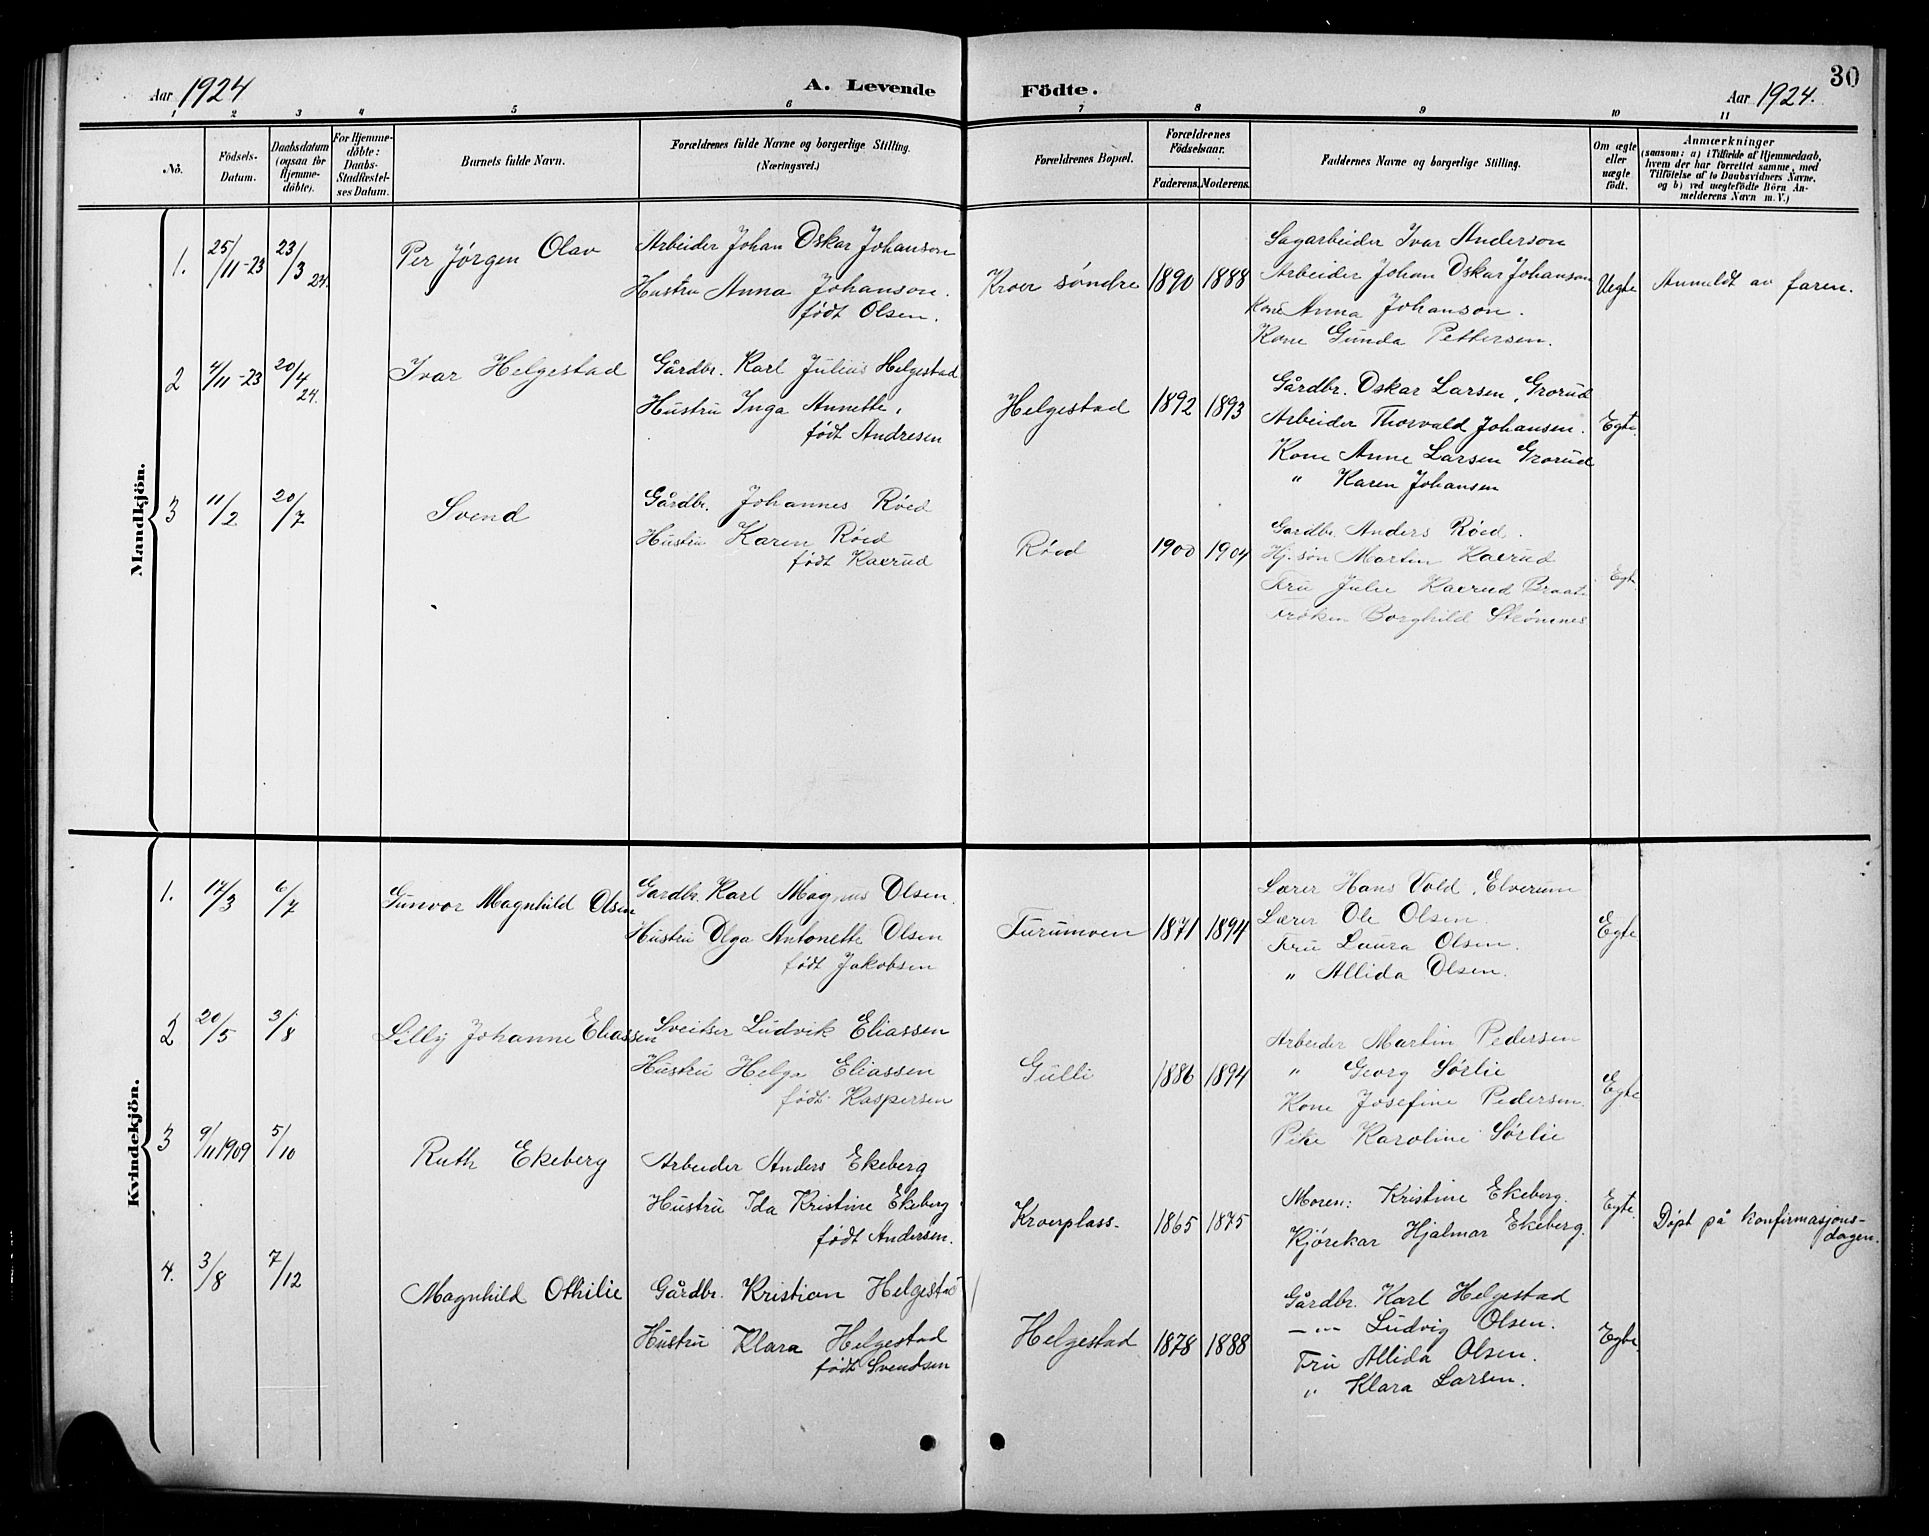 Aar 1924
A. Levende
Födte.
Aar 1924.
30
1 2 3 4 5 6 7 8 9 10 11
No.
Födsels-Datum.
Daabsdatum (ogsaa for Hjemme-döbte).
For Hjemme-döbte: Daabs-Stadfæstel-ses Datum.
Barnets fulde Navn.
Forældrenes fulde Navne og borgerlige Stilling. (Næringsvei.)
Forældrenes Bopæl.
Forældrenes Födselsaar.
Faderens. Moderens.
Faddernes Navne og borgerlige Stilling.
Om ægte eller uægte födt.
Anmærkninger
(saasom: a) i Tilfælde af Hjemmedaab,
hvem der har forrettet samme, med
Tilföielse af to Daabsvidners Navne,
og b) ved uegtefödte Börn An-
melderens Navn m. V.)
Mandkjön.
1. 25/11-23 23/3 24. Per Jørgen Olav
Arbeider Johan Oskar Johanson
Hustru Anna Johanson.
født Olsen.
Kroer søndre 1890 1888
Sagarbeider Ivar Anderson
Arbeider Johan Oskar Johanson
Kone Anna Johanson.
Kone Gunda Pettersen.
Uegte
Anmeldt av faren.
2 4/11-23 20/4 24. Ivar Helgestad
Gårdbr. Karl Julius Helgestad
Hustru Inga Annette,
født Andresen
Helgestad 1892 1893
Gårdbr. Oskar Larsen, Grorud
Arbeider Thorvald Johansen.
Kone Anne Larsen Grorud
" Karen Johansen
Egte.
3 11/2 20/7 Svend
Gårdbr. Johannes Røed
Hustru Karen Røed
født Kaxrud
Røed 1900 1904
Gardbr. Anders Røed.
Hj. søn Martin Kaxrud
Fru Julie Kaxrud
Frøken Borghild Strømnes
Egte
Kvindekjön.
1. 17/3 6/7 Gunvor Magnhild Olsen
Gardbr. Karl Magnus Olsen.
Hustru Olga Antonette Olsen
født Jakobsen
Furumoen 1871 1894
Lærer Hans Vold, Elverum
Lærer Ole Olsen
Fru Laura Olsen.
" Allida Olsen.
Egte
2 20/5 3/8 Lilly Johanne Eliassen
Sveitser Ludvik Eliassen
Hustru Helga Eliassen
født Kaspersen
Gulli 1886 1894
Arbeider Martin Pedersen
" Georg Sørlie
Kone Josefine Pedersen.
Pike Karoline Sørlie
Egte
3 9/11 1909 5/10 Ruth Ekeberg
Arbeider Anders Ekeberg
Hustru Ida Kristine Ekeberg
født Andersen.
Kroerplass. 1865 1875
Moren: Kristine Ekeberg.
Kjørekar Hjalmar Ekeberg.
Egte.
Døpt på konfirmasjons-
dagen.
4. 3/8 7/12 Magnhild Othilie
Gårdbr. Kristian Helgestad
Hustru Klara Helgestad
født Svendsen
Helgestad 1878 1888
Gårdbr. Karl Helgestad
—"— Ludvig Olsen.
Fru Allida Olsen.
" Klara Larsen.
Egte